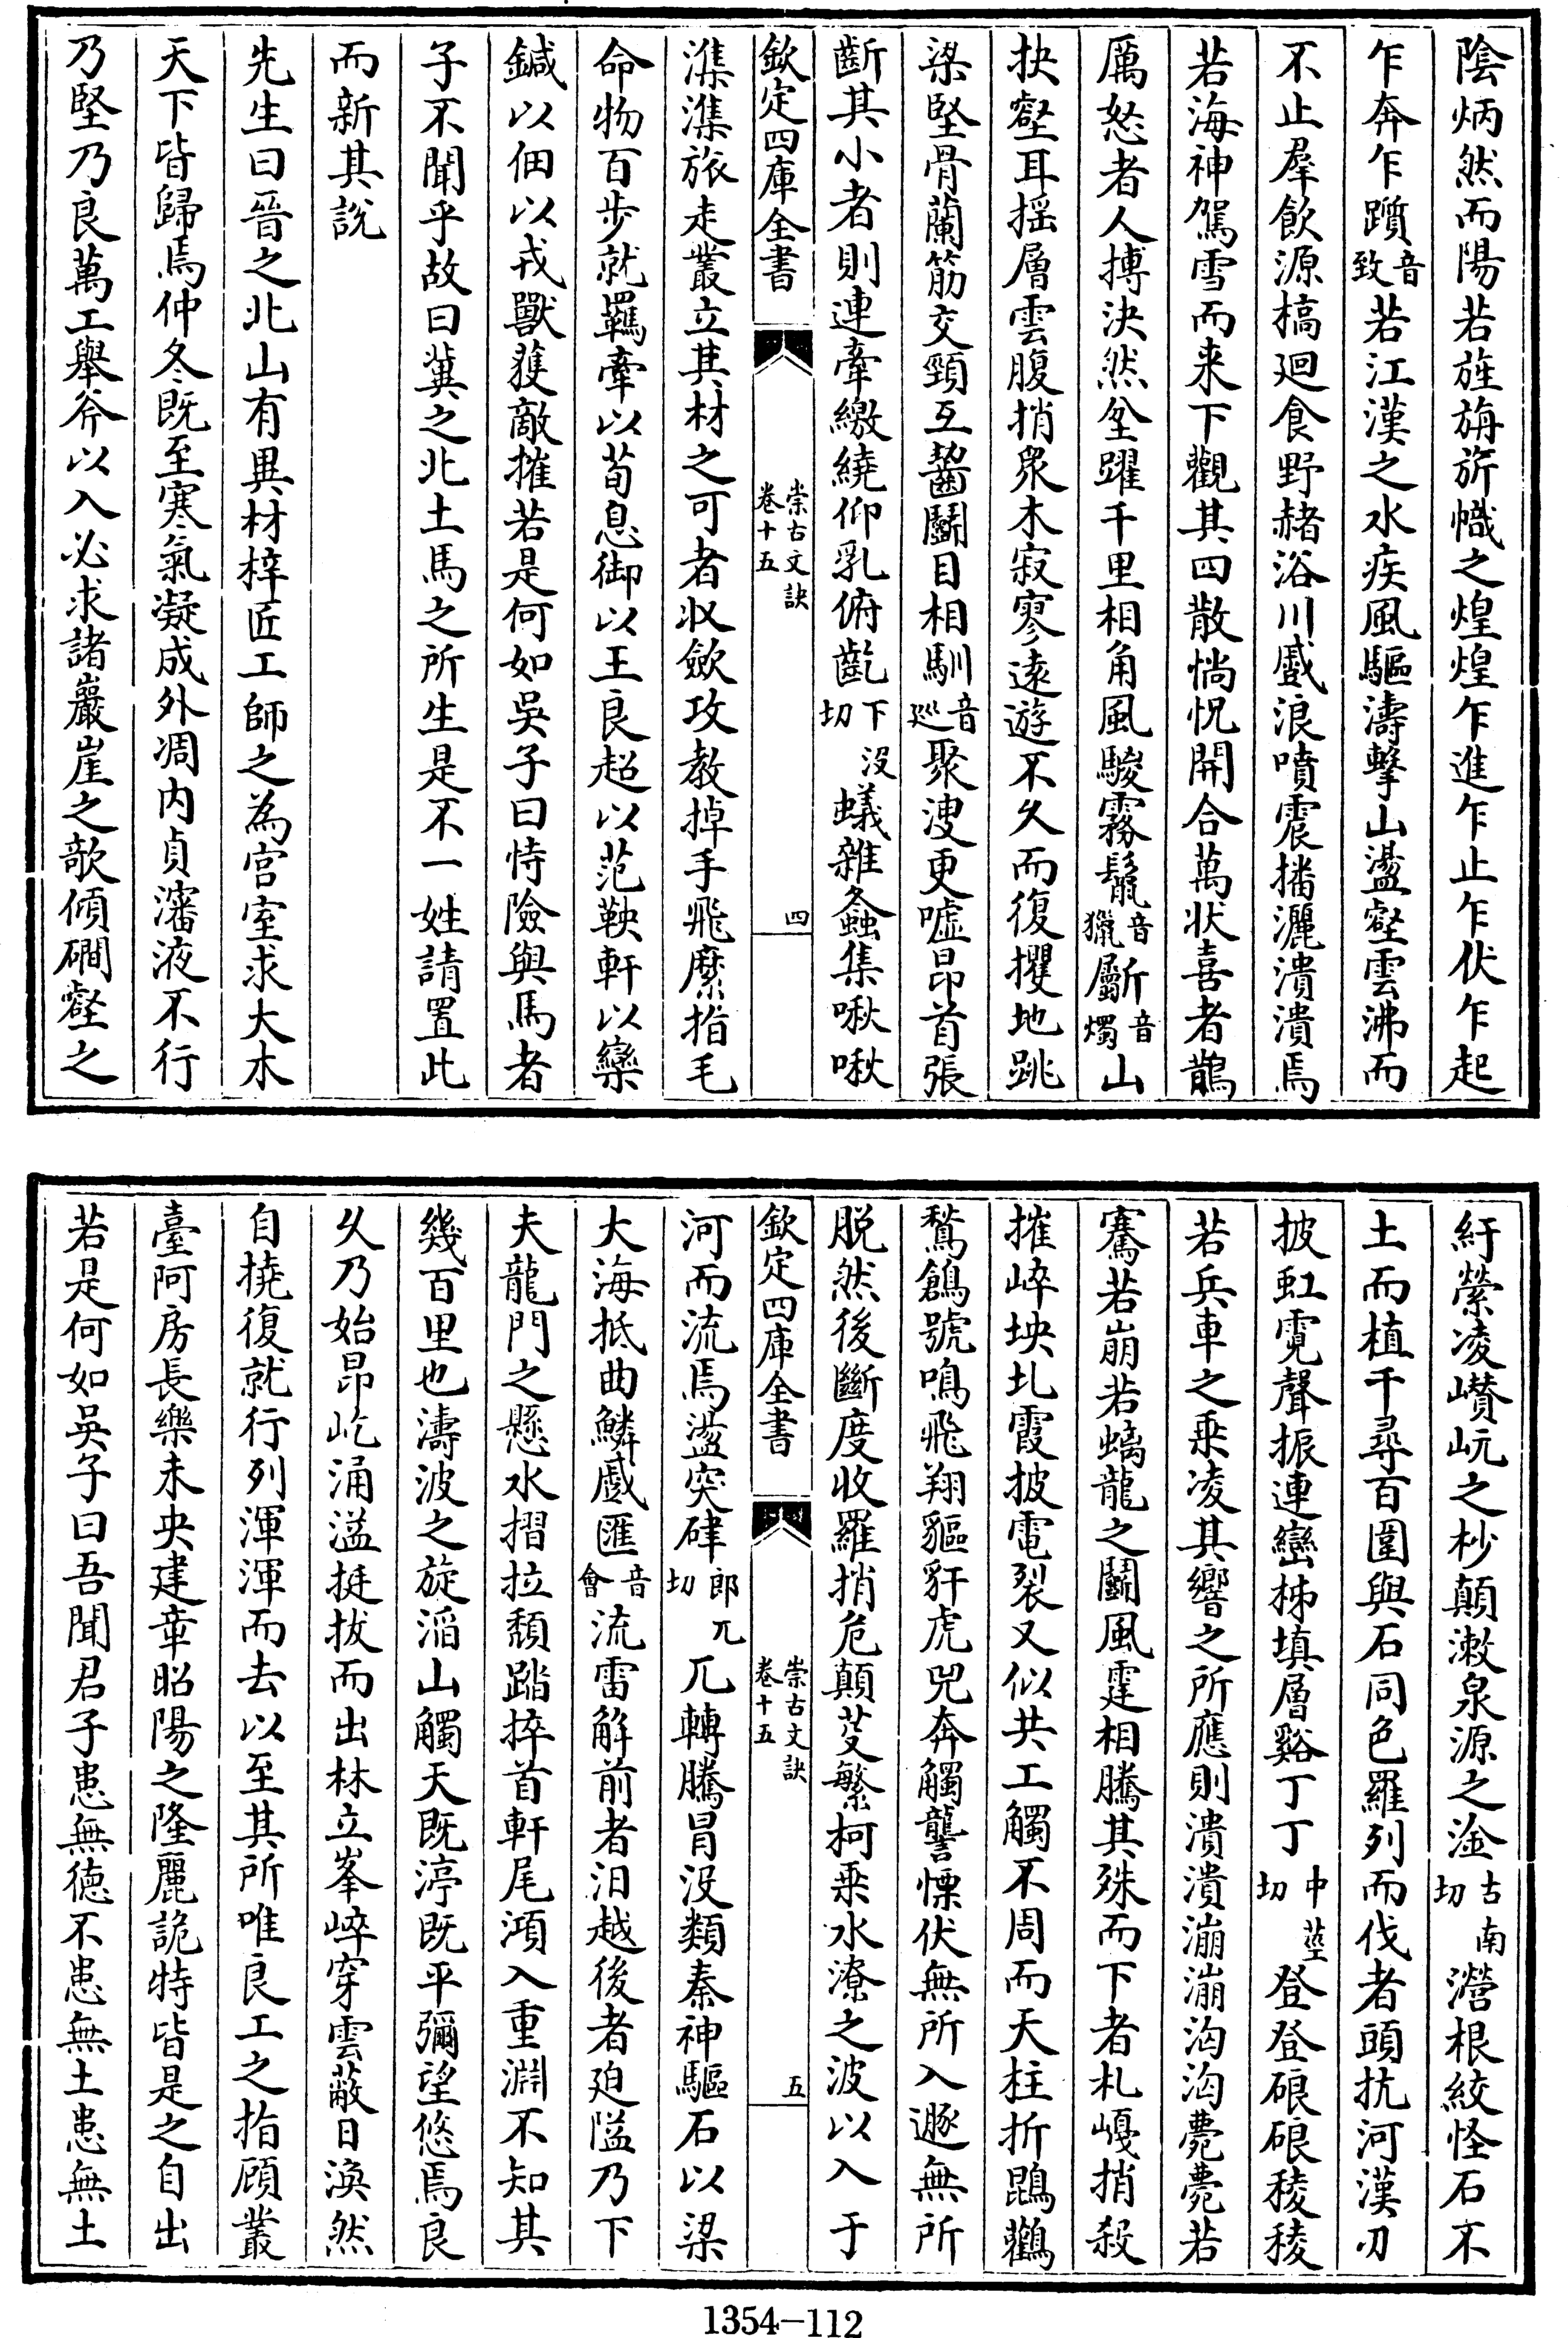 陰炳然而陽若旌旃旂幟之煌煌乍進乍止乍伏乍起
乍奔乍躓音致若江漢之水疾風驅濤擊山盪壑雲沸而
不止羣飲源槁迴食野赭浴川蹙浪噴震播灑潰潰焉
若海神駕雪而来下觀其四散惝怳開合萬狀喜者鵲
厲怒者人搏決然坌躍千里相角風騣霧鬛音獵斸音燭山
抉壑耳揺層雲腹捎衆木寂寥逺遊不久而復攫地跳
梁堅骨蘭筋交頸互齧鬬目相馴音巡聚溲更嘘昻首張
齗其小者則連牽繳繞仰乳俯齕下没切蟻雜螽集啾啾
欽定四庫全書
崇古文訣
卷十五
四
潗潗旅走叢立其材之可者收歛攻教掉手飛縻指毛
命物百步就羈牽以荀息御以王良超以范鞅軒以欒
鍼以佃以戎獸獲敵摧若是何如吳子曰恃險與馬者
子不聞乎故曰冀之北土馬之所生是不一姓請置此
而新其說
先生曰晉之北山有異材梓匠工師之為宫室求大木
天下皆歸焉仲冬既至寒氣凝成外凋内貞瀋液不行
乃堅乃良萬工舉斧以入必求諸巖崖之欹傾礀壑之
紆縈凌巑岏之杪顛漱泉源之淦古南切瀯根絞怪石不
土而植千尋百圍與石同色羅列而伐者頭抗河漢刃
披虹霓聲振連巒柹填層谿丁丁中莖切登登硠硠稜稜
若兵車之乗凌其響之所應則潰潰漰漰洶洶薨薨若
騫若崩若螭龍之鬬風霆相騰其殊而下者札嵕捎殺
摧崪坱圠霞披電裂又似共工觸不周而天柱折鵾鸛
鶖鶬號鳴飛翔貙豻虎兕奔觸讋慄伏無所入遯無所
脱然後斷度收羅捎危顛芟繁柯乗水潦之波以入于
欽定四庫全書
崇古文訣
卷十五
五
河而流焉盪突硉郎兀切兀轉騰冒没類秦神驅石以梁
大海抵曲鱗蹙匯音會流雷解前者汩越後者廹隘乃下
夫龍門之懸水摺拉頽踏捽首軒尾澒入重淵不知其
幾百里也濤波之旋滔山觸天既渟既平彌望悠焉良
久乃始昻屹涌溢挺拔而出林立峯崪穿雲蔽日渙然
自撓復就行列渾渾而去以至其所唯良工之指顧叢
臺阿房長樂未央建章昭陽之隆麗詭特皆是之自出
若是何如吳子曰吾聞君子患無徳不患無土患無土
1354-112